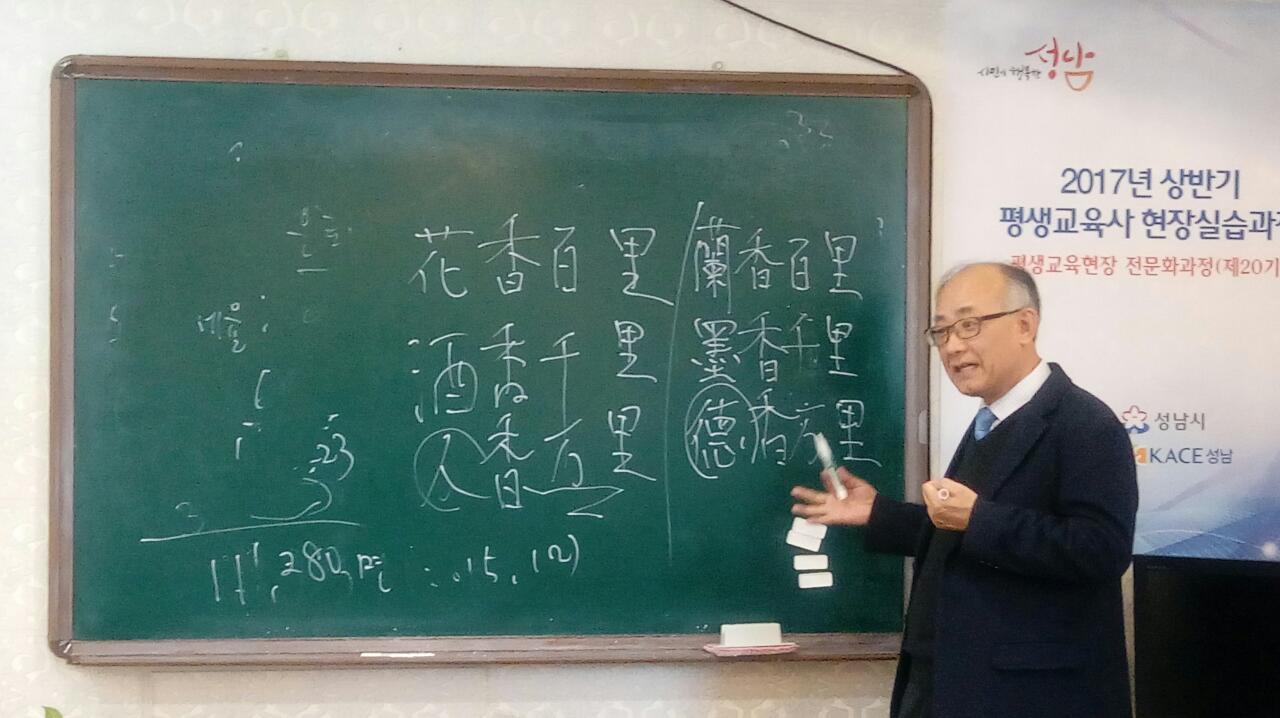 花香百里
酒香千里
人香万里
蘭香百里
墨香千里
德香万里
예술
23
3
11,280
15, 12)
시민이 행복한 성남
2017년 상반기
평생교육사 현장실습과정
평생교육현장 전문화과정(제20기
성남시
KACE성남